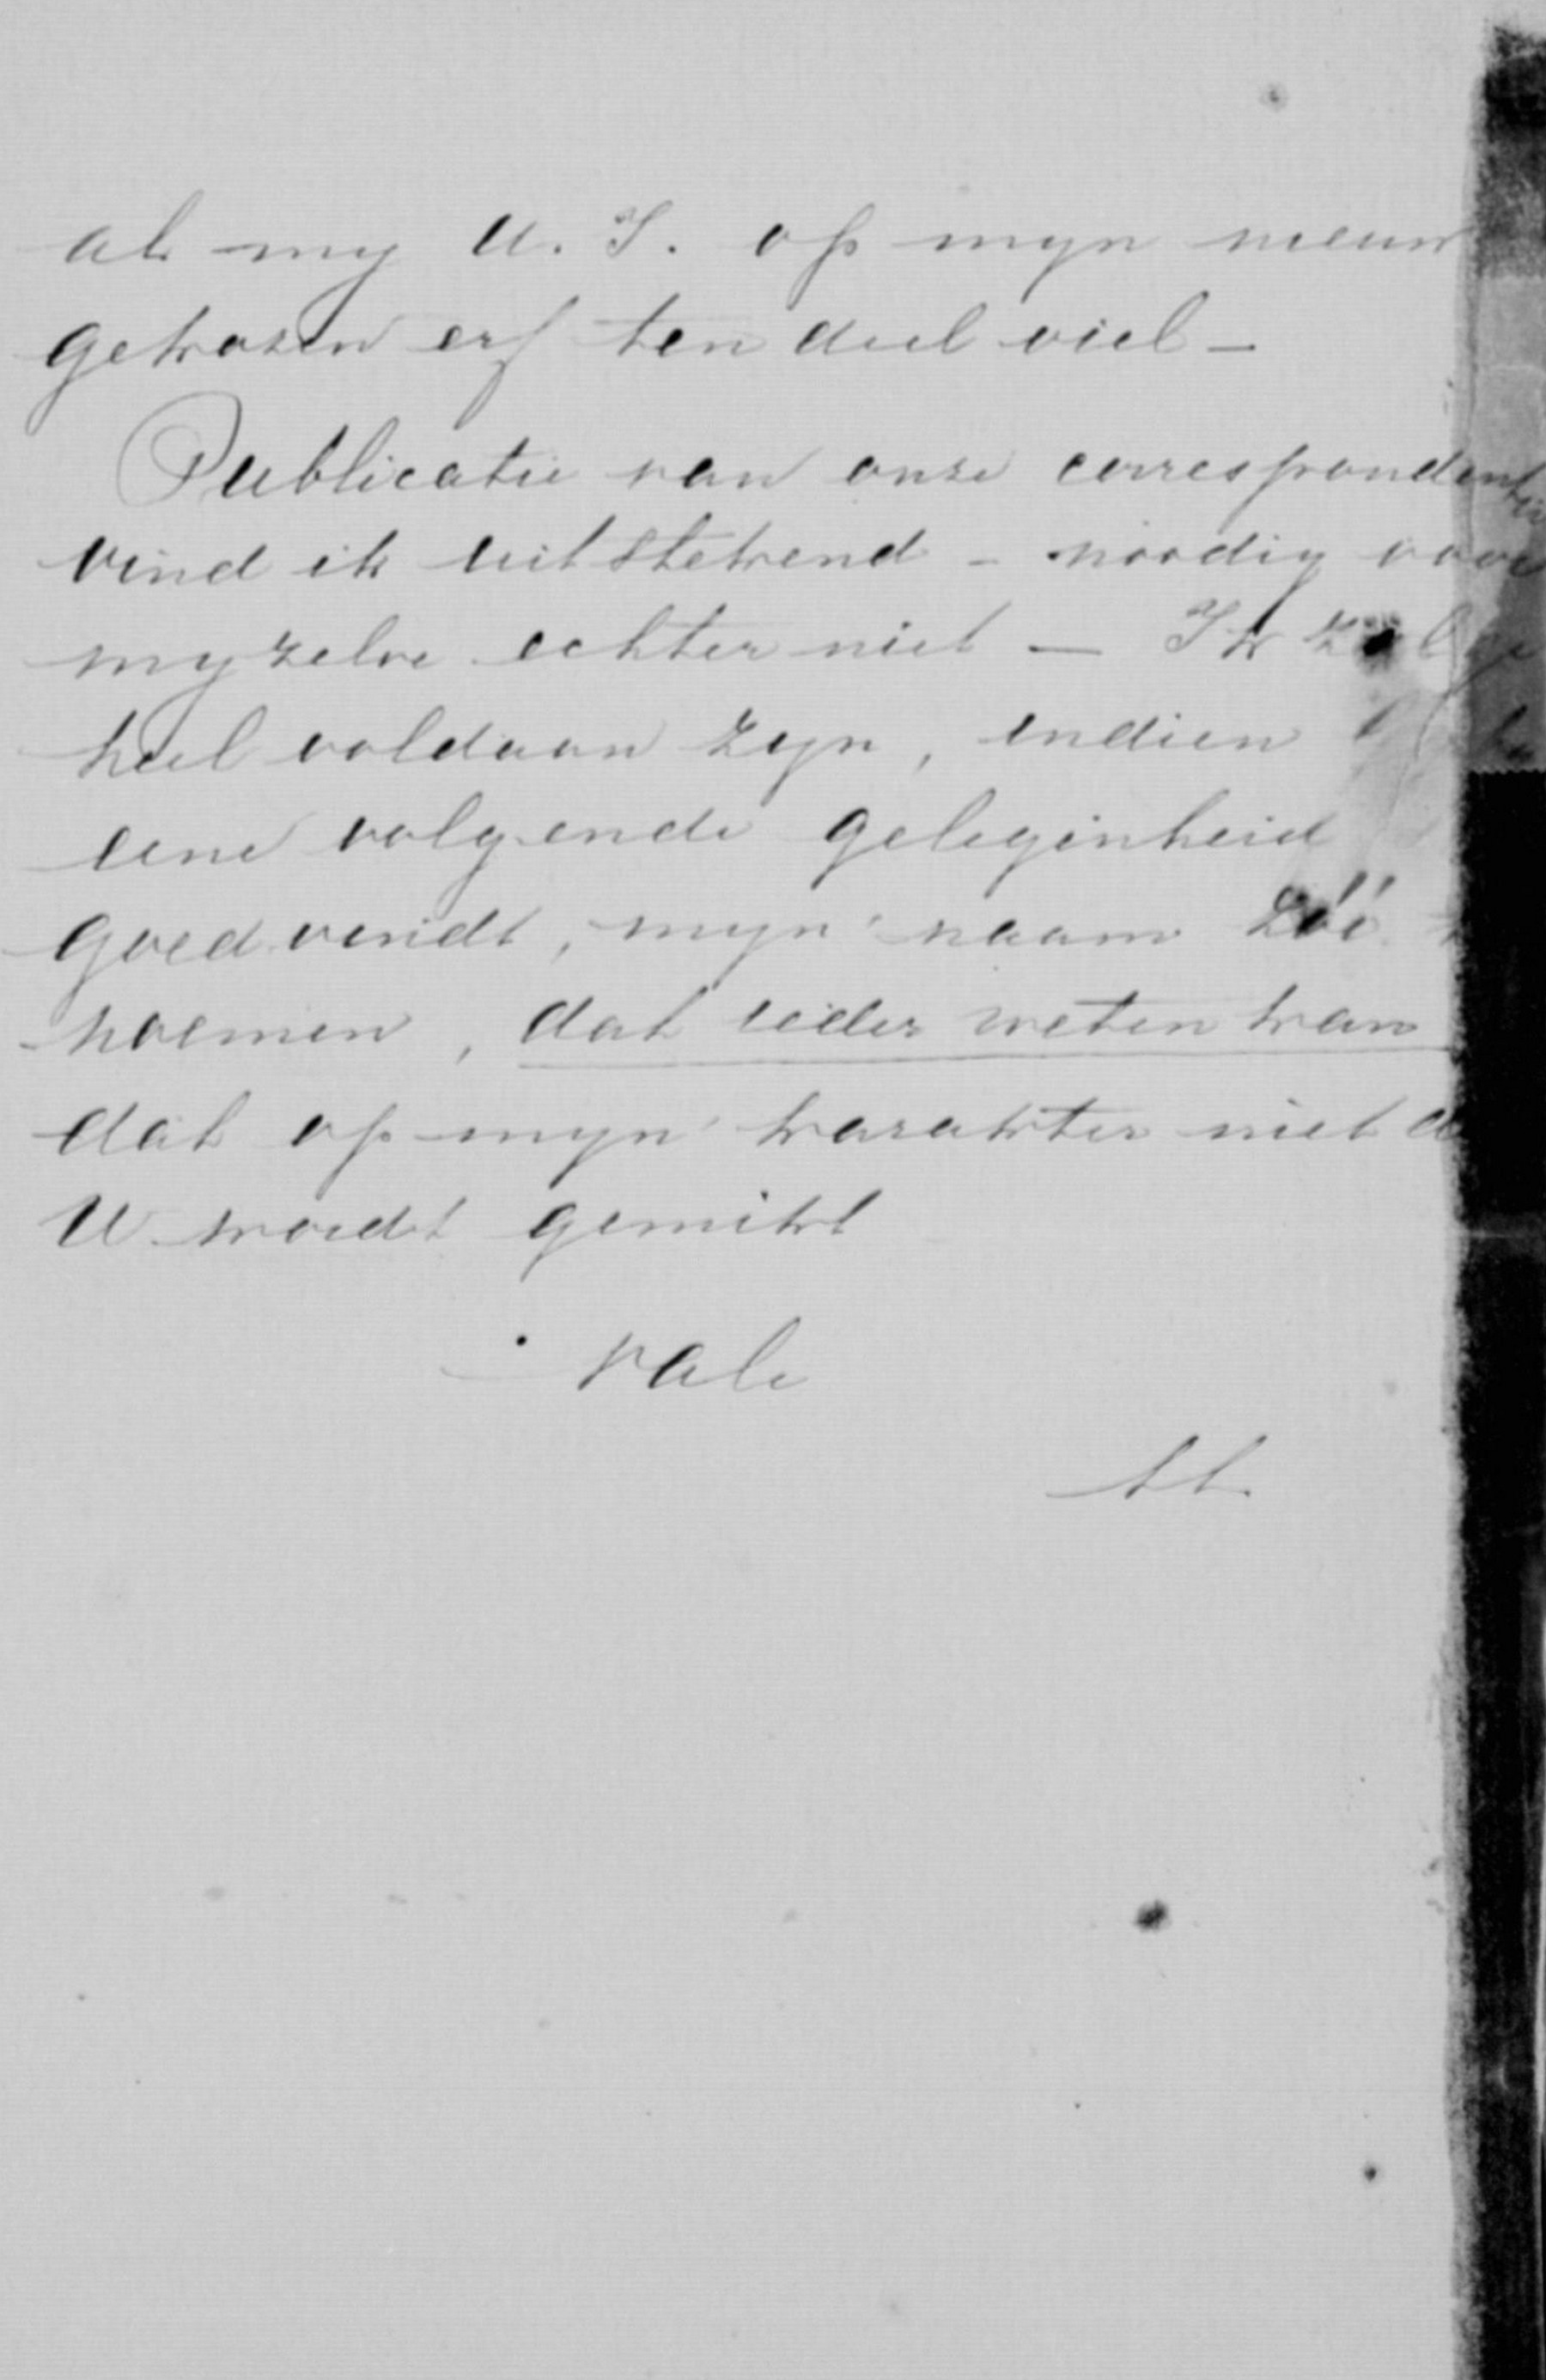 als my U. I. op myn nieuw
gekozen erf ten deel viel –
Publicatie van onze correspondentie
vind ik uitstekend – noodig voor
myzelve echter niet – Ik zal ge
heel voldaan zyn, indien
eene volgende gelegenheid
goedvindt, myn' naam zóó
noemen, dat ieder weten kan
dat op myn' karakter niet d
U wordt gemikt
vale
tt.